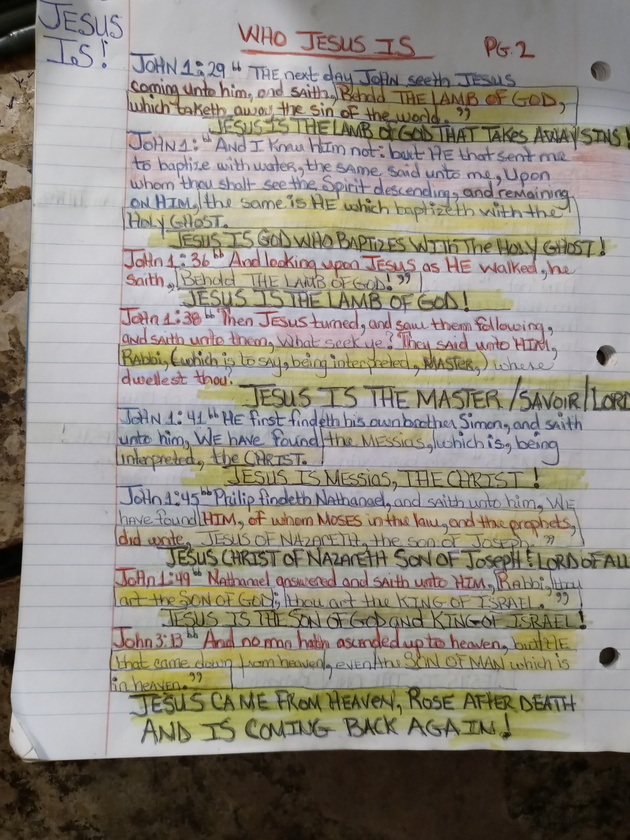 JESUS
IS!
WHO JESUS IS PG. 2
JOHN 1:29 " THE next day JOHN seeth JESUS
coming unto him, and saith, Behold THE LAMB OF GOD,
which taketh away the sin of the world."
JESUS IS THE LAMB OF GOD THAT TAKES AWAY SINS!
JOHN 1: "And I knew HIM not: but HE that sent me
to baptize with water, the same said unto me, Upon
whom thou shalt see the Spirit descending, and remaining
ON HIM, the same is HE which baptizeth with the
HOLY GHOST.
JESUS IS GOD WHO BAPTIZES WITH The HOLY GHOST!
John 1:36 " And looking upon JESUS as HE walked, he
saith, Behold THE LAMB OF GOD!"
JESUS IS THE LAMB OF GOD!
JOHN 1:38 " Then JESUS turned, and saw them following,
and saith unto them, What seek ye? They said unto HIM,
Rabbi, (which is to say, being interpreted, MASTER,) where
dwellest thou.
JESUS IS THE MASTER/SAVOIR/LORD
JOHN 1:41 " HE first findeth his own brother Simon, and saith
unto him, WE have found the MESSIAS, which is, being
interpreted, the CHRIST.
JESUS IS MESSIAS, THE CHRIST!
JOHN 1:45 " Philip findeth Nathanael, and saith unto him, WE
have found HIM, of whom MOSES in the law, and the prophets,
did write, JESUS OF NAZARETH, the son of Joseph."
JESUS CHRIST OF NAZARETH SON OF Joseph! LORD OF ALL
John 1:49 " Nathanael answered and saith unto HIM, Rabbi, thou
art the SON OF GOD; thou art the KING OF ISRAEL."
JESUS IS THE SON OF GOD and KING OF ISRAEL!
John 3:13 " And no man hath ascended up to heaven, but HE
that came down from heaven, even the SON OF MAN which is
in heaven."
JESUS CAME FROM HEAVEN, ROSE AFTER DEATH
AND IS COMING BACK AGAIN!